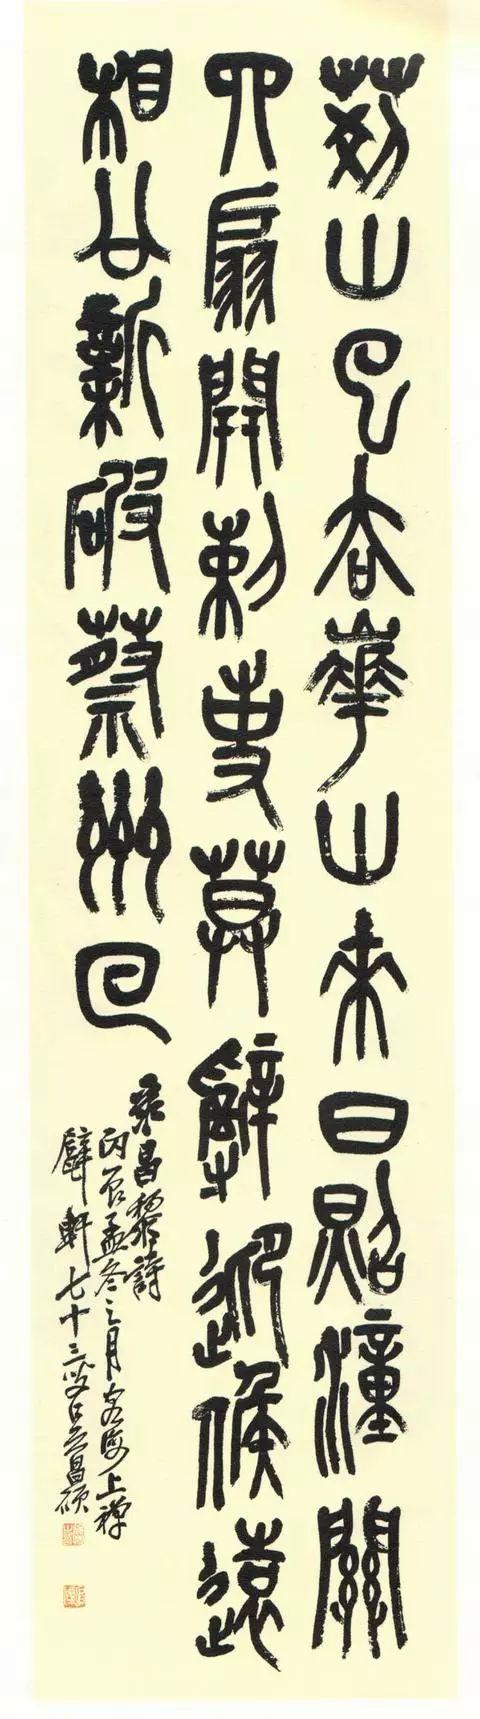 荆山已去華山來日照潼關
四扇開刺史莫辭迎候遠
相公新破蔡州回
录昌黎詩
丙辰孟冬之月客海上禪
甓軒七十三叟吳昌碩